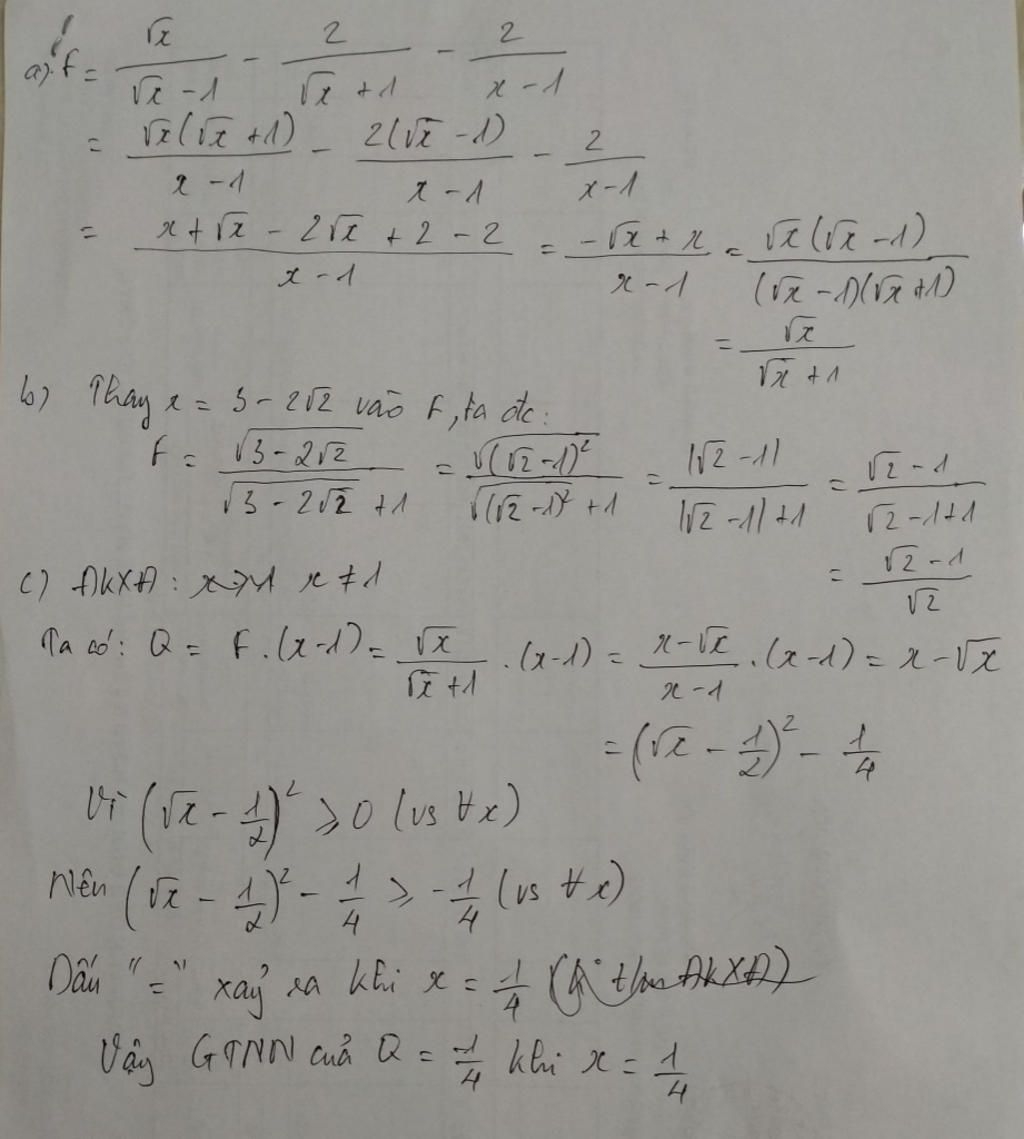 a) F = √x/(√x - 1) - 2/(√x + 1) - 2/(x - 1)
= √x(√x + 1)/(x - 1) - 2(√x - 1)/(x - 1) - 2/(x - 1)
= (x + √x - 2√x + 2 - 2)/(x - 1) = (-√x + x)/(x - 1) = √x(√x - 1)/((√x - 1)(√x + 1))
= √x/(√x + 1)
b) Thay x = 3 - 2√2 vào F, ta đc:
F = √(3 - 2√2)/(√(3 - 2√2) + 1) = √((√2 - 1)²)/(√((√2 - 1)²) + 1) = |√2 - 1|/(|√2 - 1| + 1) = (√2 - 1)/(√2 - 1 + 1)
= (√2 - 1)/√2
c) ĐKXĐ: x ≠ 1
Ta có: Q = F.(x - 1) = √x/(√x + 1) . (x - 1) = (x - √x)/(x - 1) . (x - 1) = x - √x
= (√x - 1/2)² - 1/4
Vì (√x - 1/2)² ≥ 0 (vs ∀x)
Nên (√x - 1/2)² - 1/4 ≥ -1/4 (vs ∀x)
Dấu "=" xảy ra khi x = 1/4
Vậy GTNN của Q = -1/4 khi x = 1/4